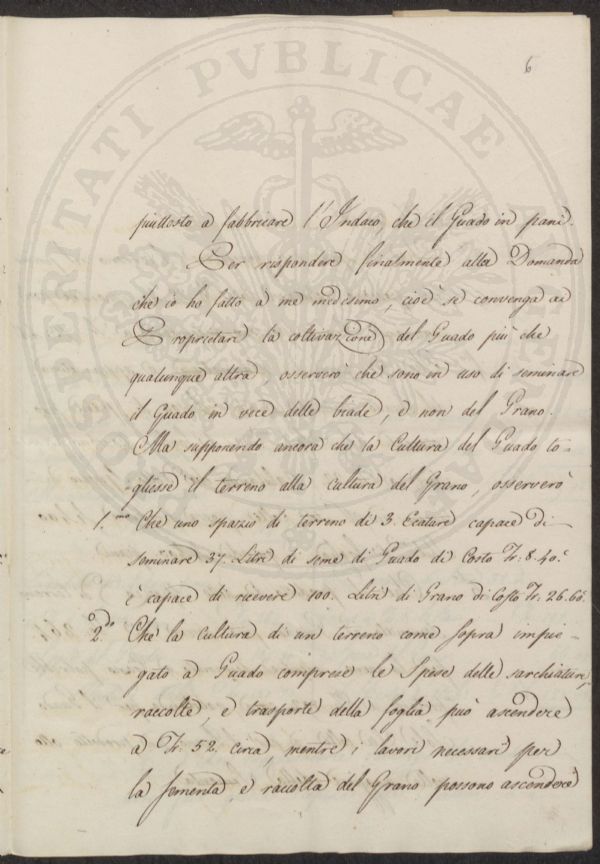 6
piuttosto a fabbricare l'Indaco, che il Guado in pani.
Per rispondere finalmente alla Domanda
che io ho fatto a me medesimo, cioè se convenga ai
Proprietari la coltivazione del Guado più che
qualunque altra, osserverò che sono in uso di seminare
il Guado in vece delle biade, e non del Grano.
Ma supponendo ancora che la Cultura del Guado to-
gliesse il terreno alla cultura del Grano, osserverò
1.mo Che uno spazio di terreno di 3. Ecature capace di
seminare 37. Litri di seme di Guado di Costo Fr. 8.40.
è capace di ricevere 100. Litri di Grano di Costo Fr. 26.60.
2.do Che la cultura di un terreno come sopra impie-
gato a Guado comprese le Spese delle sarchiature,
raccolte, e trasporte della foglia può ascendere
a Fr. 52. circa, mentre i lavori necessari per
la sementa, e raccolta del Grano possono ascendere